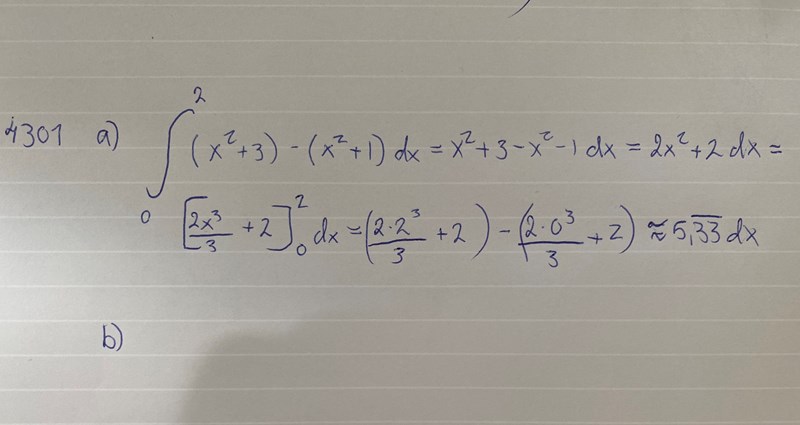 4301 a) ∫₀² (x²+3) - (x²+1) dx = x²+3-x²-1 dx = 2x²+2 dx =
[2x³/3 + 2]₀² dx = (2·2³/3 + 2) - (2·0³/3 + 2) ≈ 5,3̅3̅ dx
b)